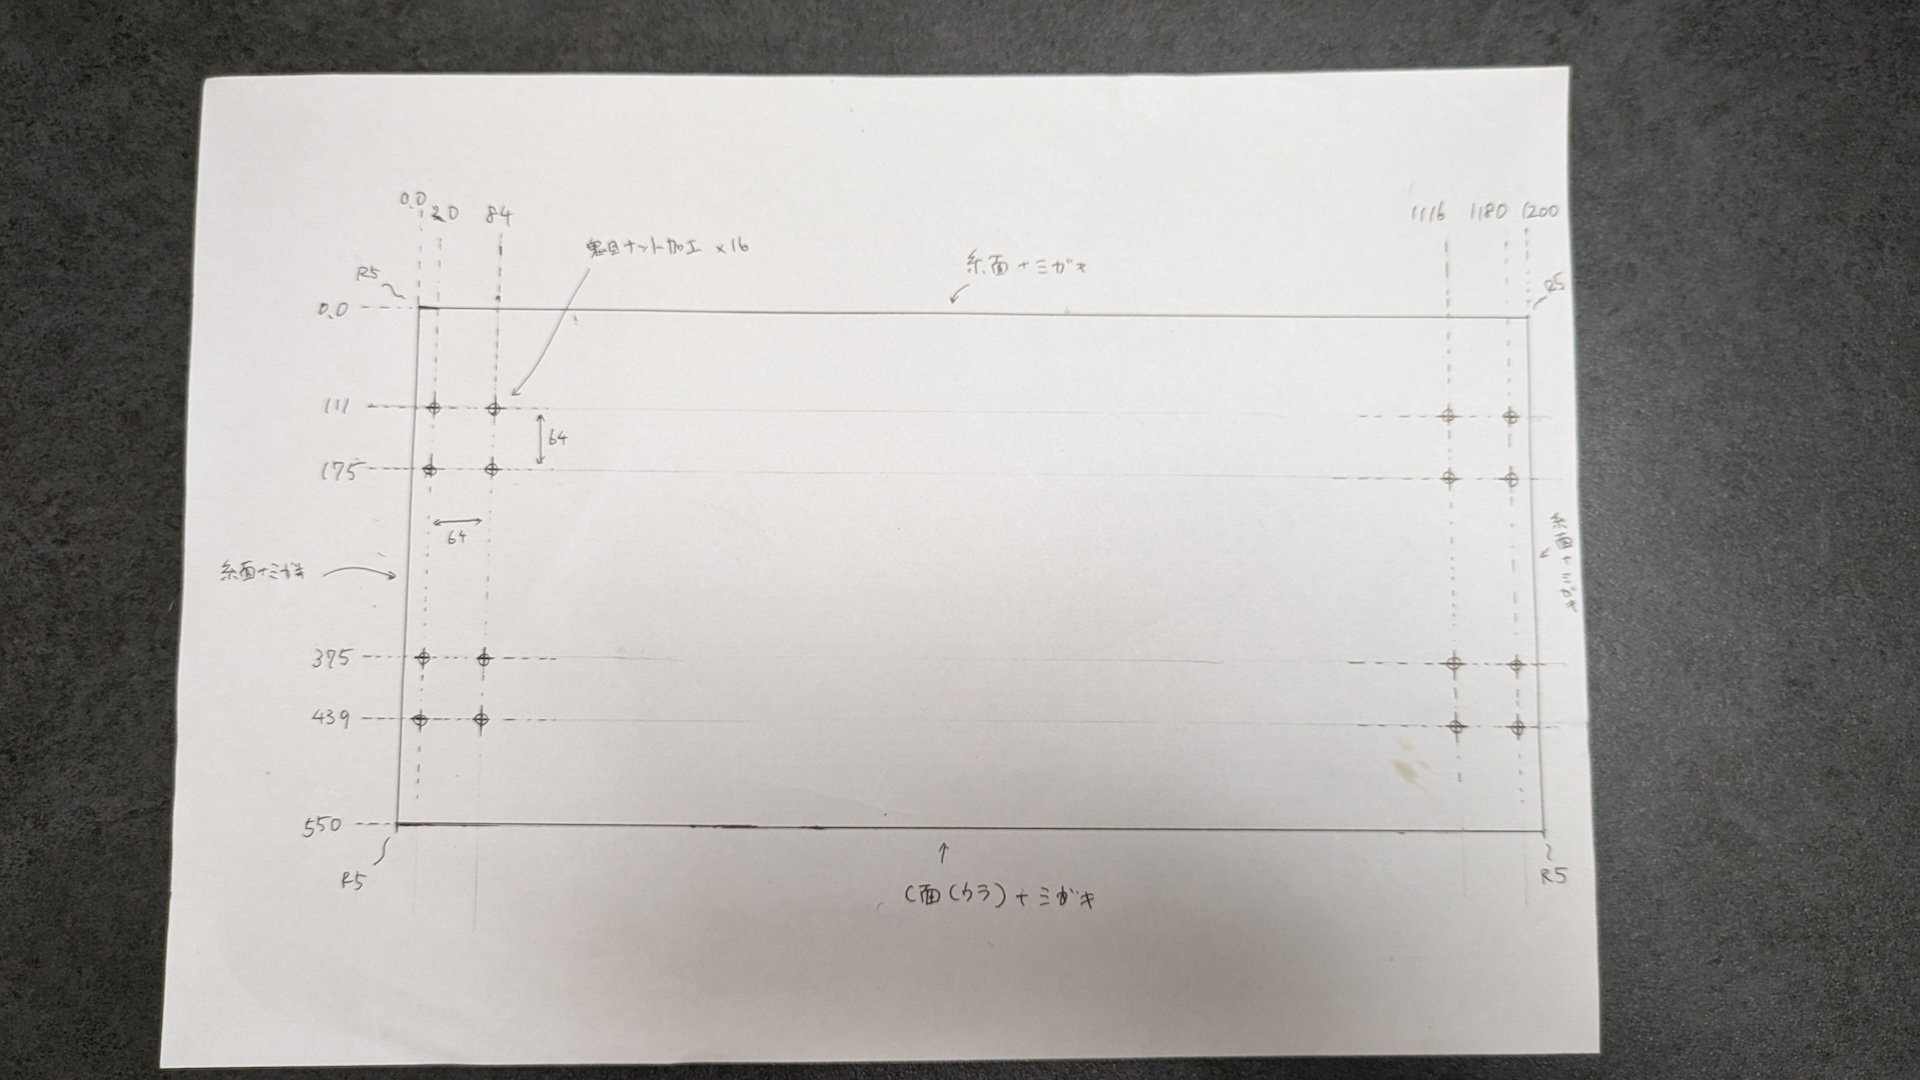 0.0 20 84
1116 1180 1200
鬼目ナット加工 ×16
糸面+ミガキ
R5
R5
0.0
111
64
175
64
糸面+ミガキ
糸面+ミガキ
375
439
550
R5
R5
C面(ウラ)+ミガキ